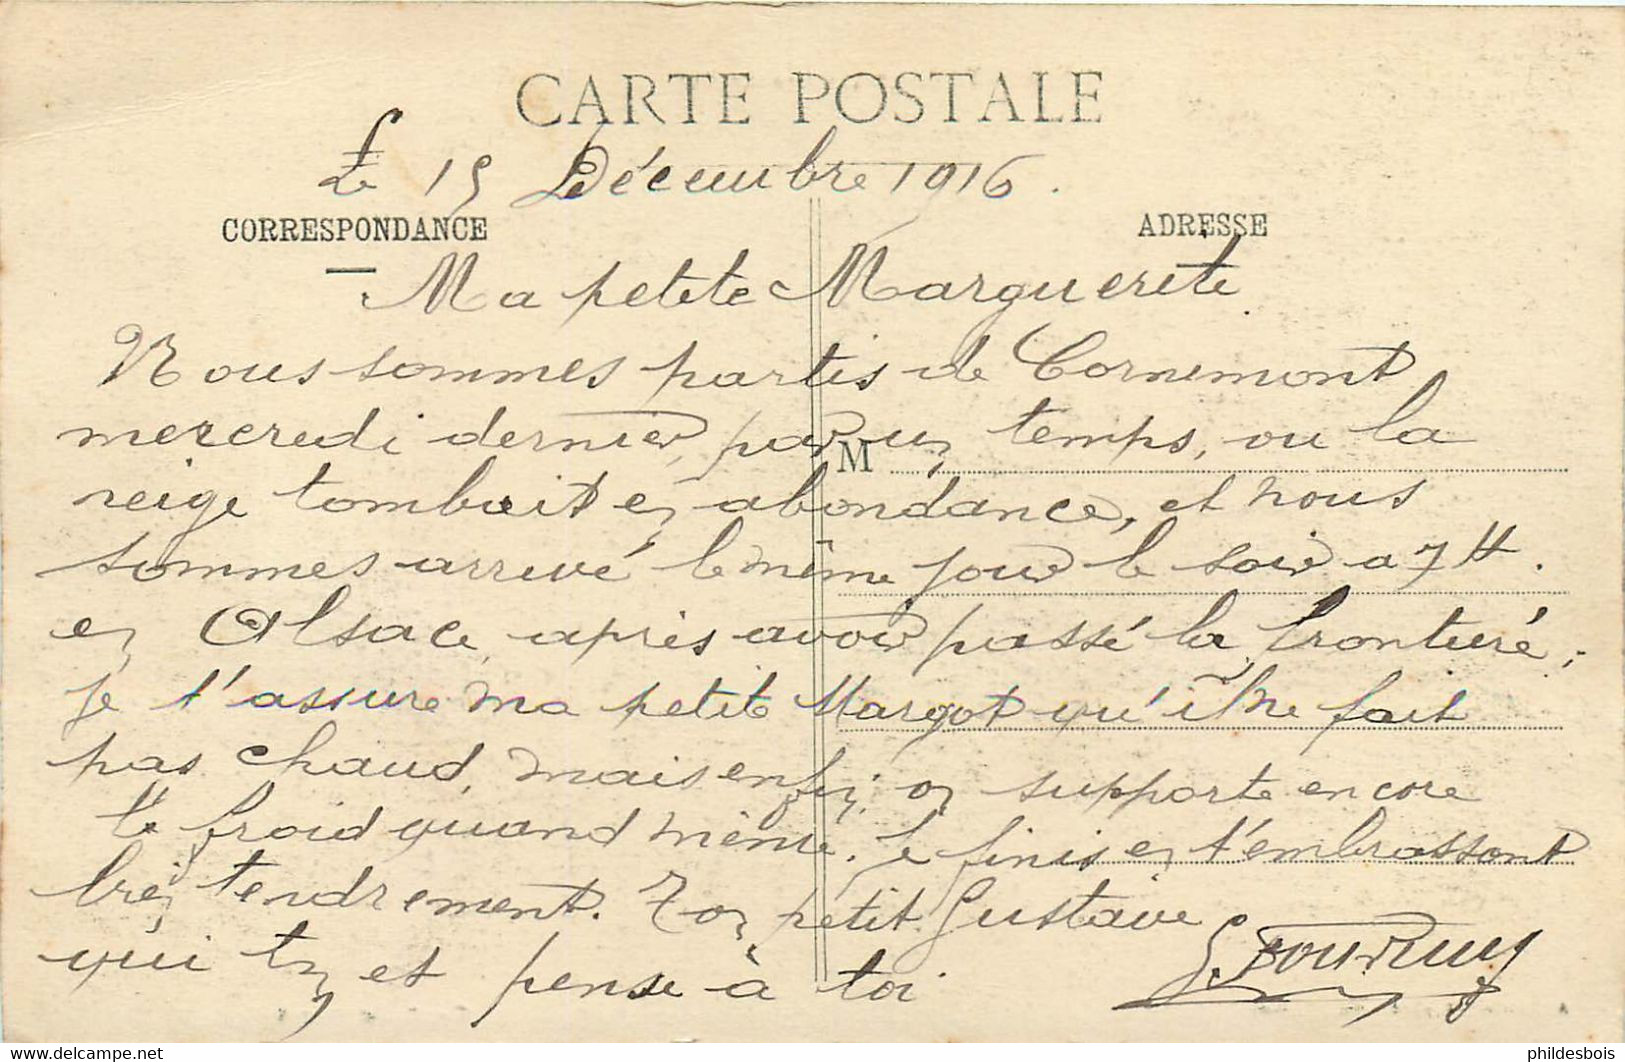 CARTE POSTALE
Le 15 Décembre 1916.
CORRESPONDANCE
ADRESSE
Ma petite Marguerite
Nous sommes partis de Cornimont
mercredi dernier, par un temps, ou la
M
neige tombait en abondance, et nous
sommes arrivé le même jour le soir a 7 H.
en Alsace, après avoir passé la frontiéré,
je t'assure ma petite Margot qu'il ne fait
pas chaud, mais enfin, on supporte encore
le froid quand même. Je finis en t'embrassant
bien tendrement. Ton petit Gustave
qui et pense à toi
G.
phildesbois
www.delcampe.net